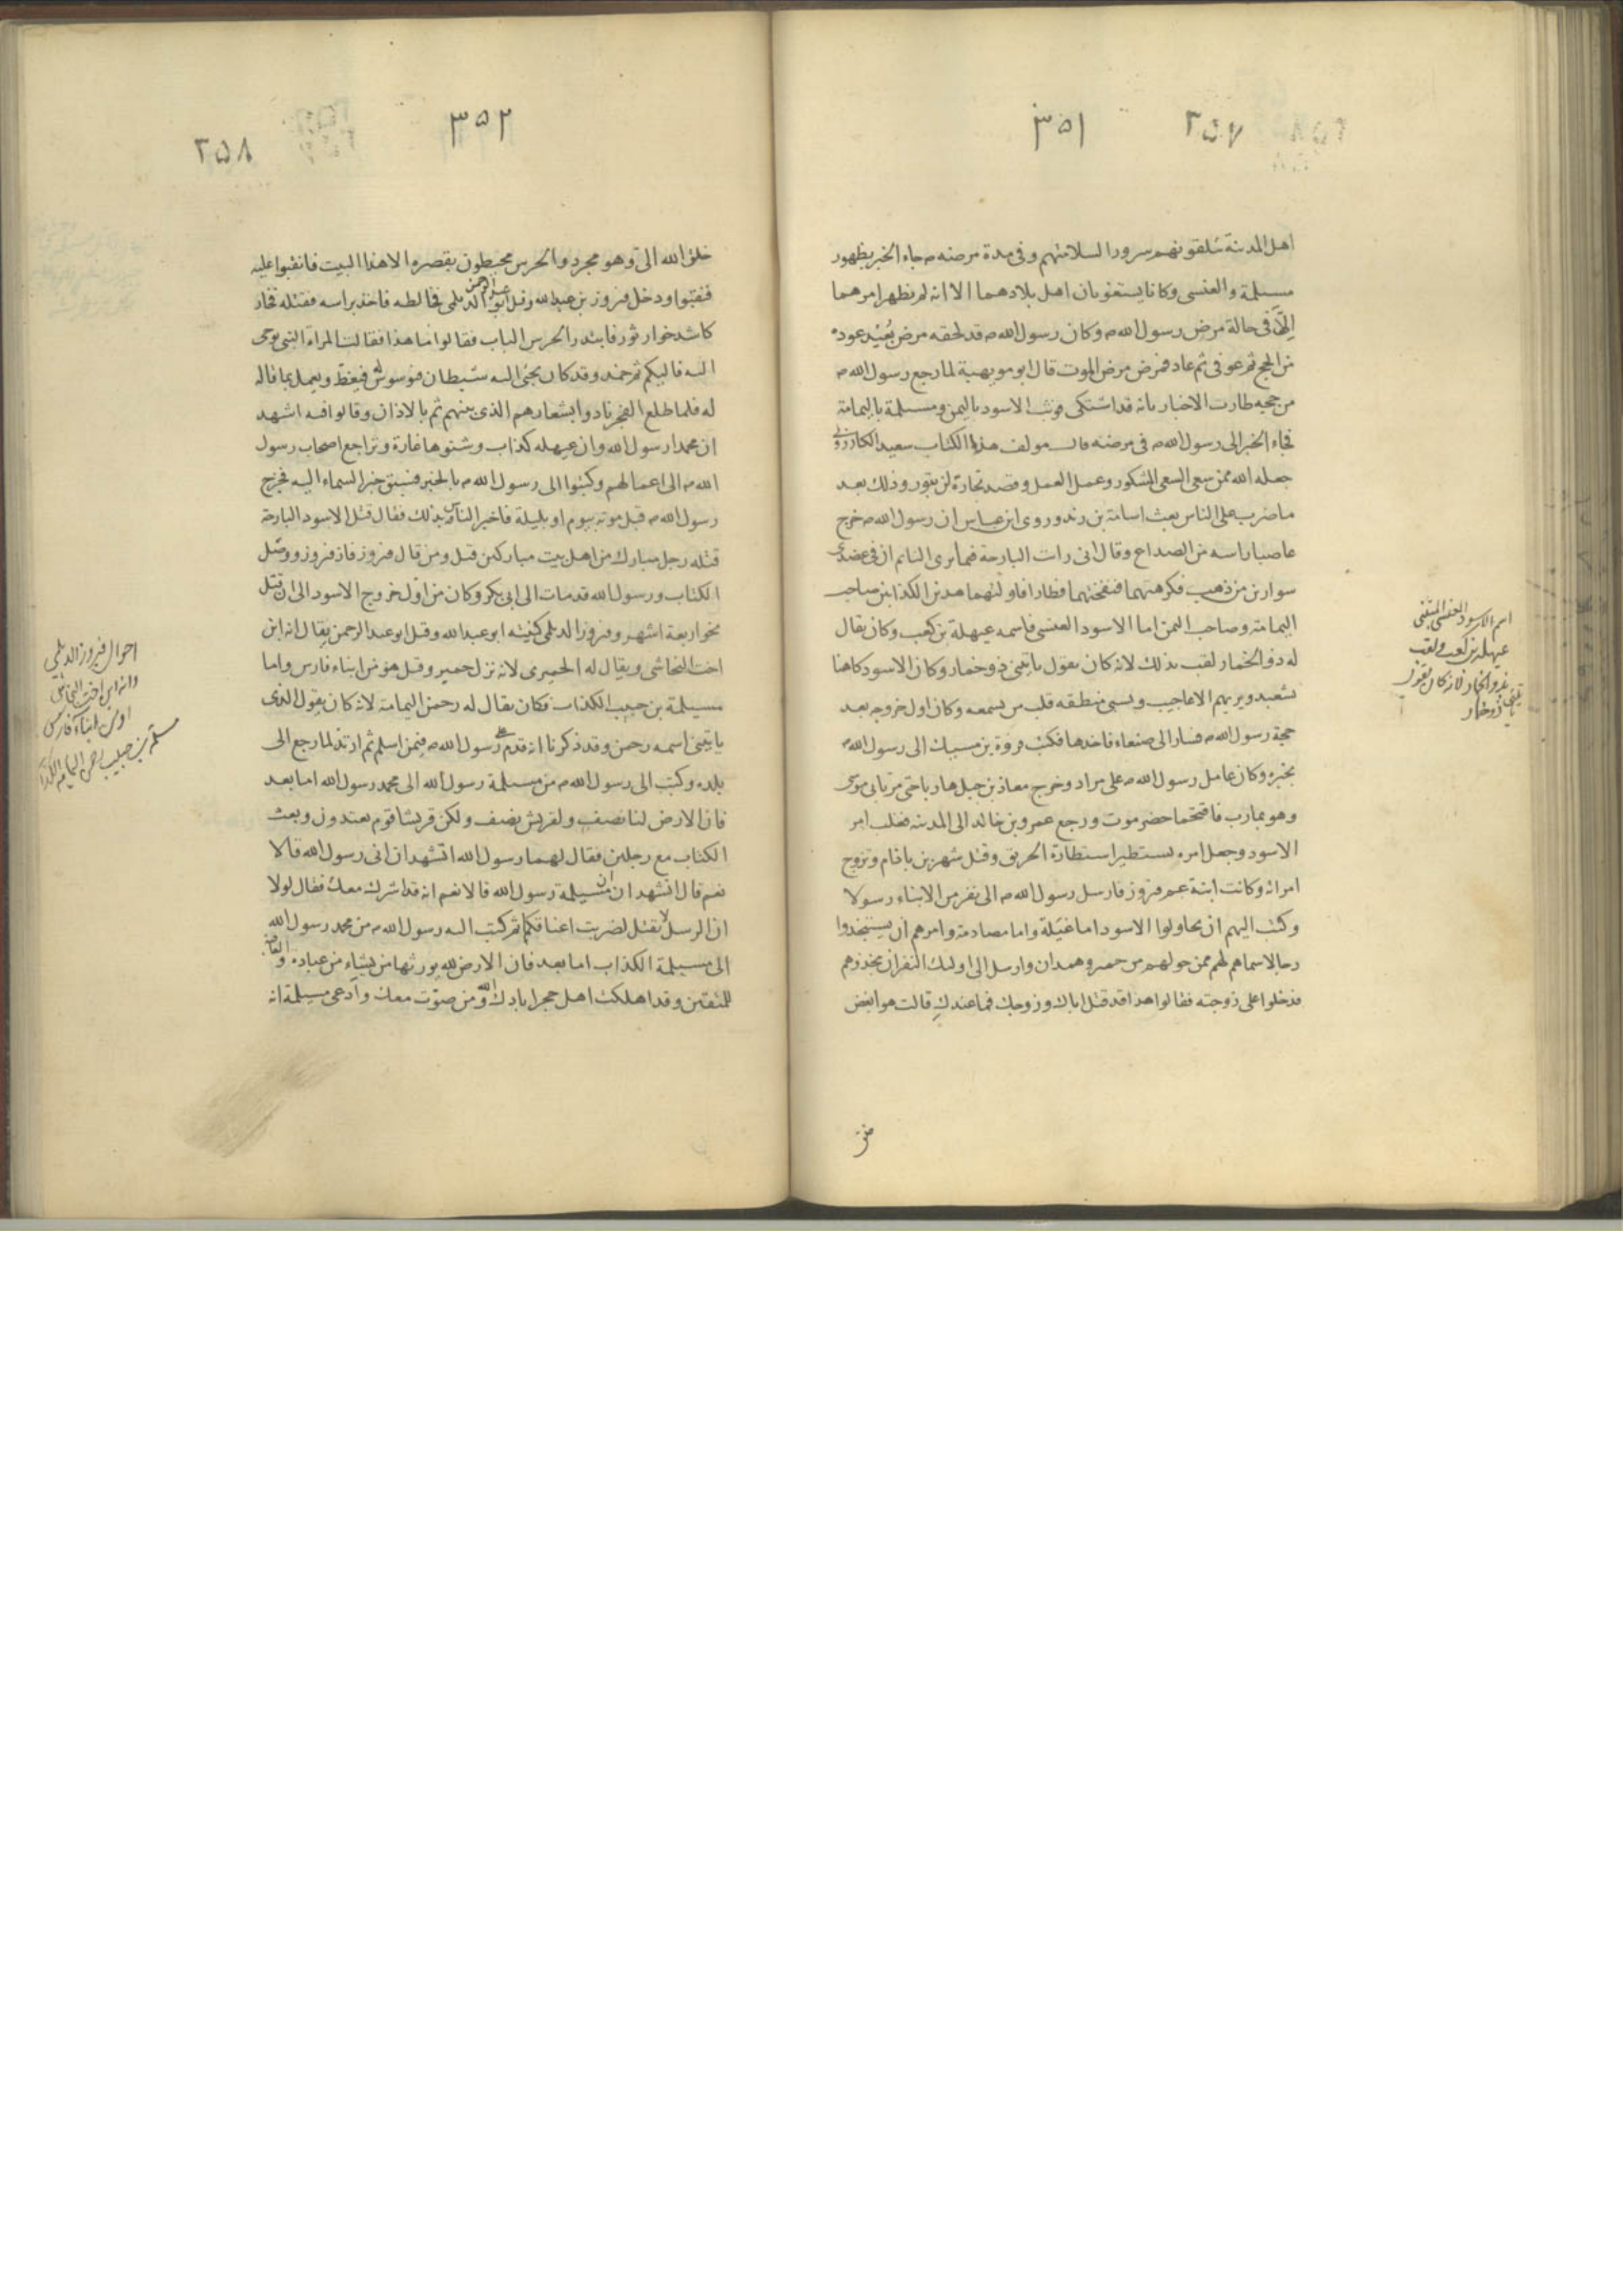 ٣٥١
٢٥٧
اهل المدينة يتلقونهم سرورا لسلامتهم وفى مدة مرضه م جاء الخبر بظهور
مسيلمة والعنسى وكانا يستغويان اهل بلادهما الا انه لم يظهر امرهما
الا فى حالة مرض رسول الله م وكان رسول الله م قد لحقه مرض بعيد عوده
من الحج ثم عوفى ثم عاد فمرض مرض الموت قال ابو مويهبة لما رجع رسول الله م
من حجه طارت الاخبار بانه قد اشتكى فوثب الاسود باليمن ومسيلمة باليمامة
فجاء الخبر الى رسول الله م فى مرضه قال مولف هذا الكتاب سعيد الكازرونى
جعله الله ممن سعى السعى المشكور وعمل العمل وقصد تجارة لن تبور وذلك بعد
ما ضرب على الناس بعث اسامة بن زيد وروى ابن عباس ان رسول الله م خرج
عاصبا راسه من الصداع وقال انى رات البارحة فيما يرى النائم ان فى عضدى
سوارين من ذهب فكرهتهما فنفختهما فطارا فاولتهما هذين الكذابين صاحب
اليمامة وصاحب اليمن اما الاسود العنسى فاسمه عيهلة بن كعب وكان يقال
له ذو الخمار لقب بذلك لانه كان يقول ياتينى ذو خمار وكان الاسود كاهنا
يشعبد ويريهم الاعاجيب ويسبى منطقه قلب من يسمعه وكان اول خروجه بعد
حجة رسول الله م فسار الى صنعاء فاخذها فكتب فروة بن مسيك الى رسول الله م
بخبره وكان عامل رسول الله م على مراد وخرج معاذ بن جبل هاربا حتى مر بابى موسى
وهو بمارب فاقتحما حضرموت ورجع عمرو بن خالد الى المدينة فغلب امر
الاسود وجعل امره يستطير استطارة الحريق وقتل شهر بن باذام وتزوج
امراته وكانت ابنة عم فيروز فارسل رسول الله م الى نفر من الابناء رسولا
وكتب اليهم ان يحاولوا الاسود اما غيلة واما مصادمة وامرهم ان يستنجدوا
رجالا سماهم لهم ممن حولهم من حمير وهمدان وارسل الى اولئك النفر ان ينجدوهم
فدخلوا على زوجته فقالوا هذا قد قتل اباك وزوجك فما عندك قالت هو ابغض
خلق
اسم الاسود العنسى المتنبى
عيهلة بن كعب ولقب
بذو الخمار لانه كان يقول
ياتينى ذو خمار
٣٥٢
٢٥٨
خلق الله الى وهو مجرد والحرس محيطون بقصره الا هذا البيت فانقبوا عليه
فنقبوا ودخل فيروز بن عبد الله وقيل ابو عبد الرحمن الديلمى فخالطه فاخذ براسه فقتله فخار
كاشد خوار ثور فابتدر الحرس الباب فقالوا ما هذا فقالت المراة النبى يوحى
اليه فاليكم ثم خمد وقد كان يجئ اليه شيطان فيوسوس له فيغط ويعمل بما قال
له فلما طلع الفجر نادوا بشعارهم الذى بينهم ثم بالاذان وقالوا فيه اشهد
ان محمدا رسول الله وان عيهله كذاب وشنوها غارة وتراجع اصحاب رسول
الله م الى اعمالهم وكتبوا الى رسول الله م بالخبر فسبق خبر السماء اليه فخرج
رسول الله م قبل موته بيوم او بليلة فاخبر الناس بذلك فقال قتل الاسود البارحة
قتله رجل مبارك من اهل بيت مباركين قيل ومن قال فيروز فاز فيروز ووصل
الكتاب ورسول الله قد مات الى ابى بكر وكان من اول خروج الاسود الى ان قتل
نحو اربعة اشهر وفيروز الديلمى كنيته ابو عبد الله وقيل ابو عبد الرحمن يقال انه ابن
اخت النجاشى ويقال له الحميرى لانه نزل حمير وقيل هو من ابناء فارس واما
مسيلمة بن حبيب الكذاب فكان يقال له رحمن اليمامة لانه كان يقول الذى
ياتينى اسمه رحمن وقد ذكرنا انه قدم على رسول الله م فيمن اسلم ثم ارتد لما رجع الى
بلده وكتب الى رسول الله م من مسيلمة رسول الله الى محمد رسول الله اما بعد
فان الارض لنا نصف ولقريش نصف ولكن قريشا قوم يعتدون وبعث
الكتاب مع رجلين فقال لهما رسول الله اتشهدان انى رسول الله قالا
نعم قال اتشهدان ان مسيلمة رسول الله قالا نعم انه قد اشرك معك فقال لولا
ان الرسل لا تقتل لضربت اعناقكما ثم كتب اليه رسول الله م من محمد رسول الله
الى مسيلمة الكذاب اما بعد فان الارض لله يورثها من يشاء من عباده والعاقبة
للمتقين وقد اهلكت اهل حجر ابادك الله ومن صوت معك وادعى مسيلمة انه
احوال فيروز الديلمى
وانه ابن اخت النجاشى
او من ابناء فارس